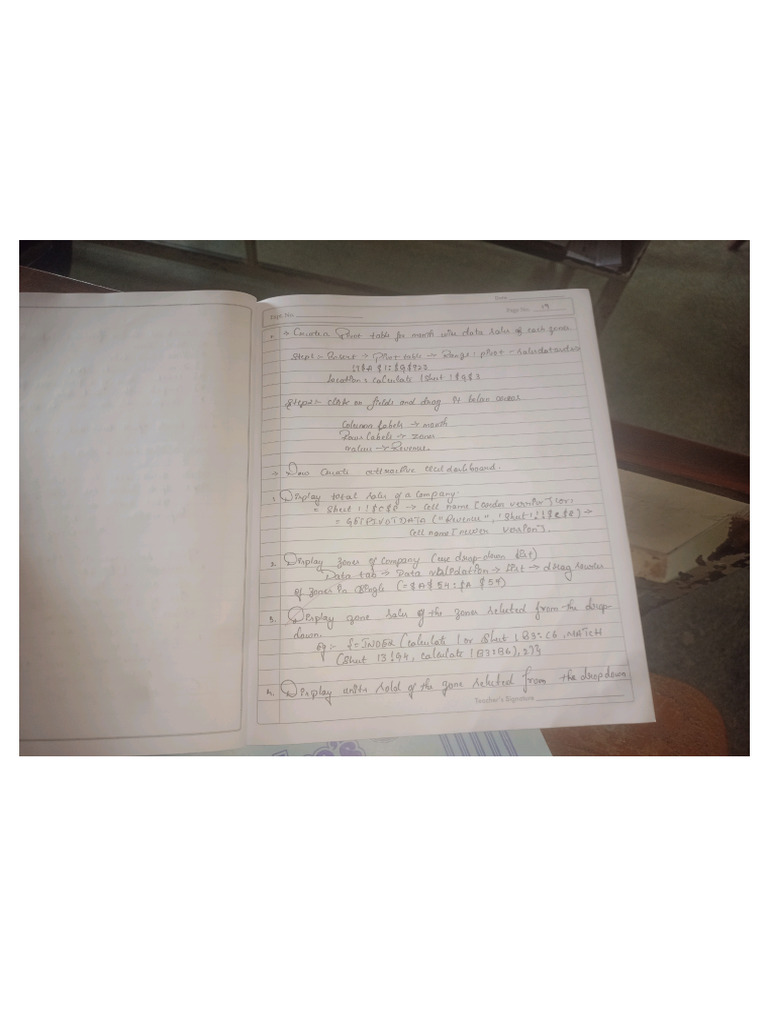 Date
Expt. No. Page No. 19
→ Create a Pivot table for month wise data sales of each zones
Step1:- Insert → Pivot table → Range: pivot -
Location: calculate | Sheet ! $9$
Step2:- click on fields and drag it below
Column labels → month
Rows labels → zones
values → Revenue.
→ Now Create attractive dashboard.
1. Display total sales of a company:
= Sheet 1! $C$ → Cell name [older version] (or)
= GETPIVOTDATA ("Revenue", 'Sheet1'! $ $ ) →
Cell name [newer version].
2. Display zones of Company (use drop-down list)
Data tab → Data validation → list → drag
of zones in single (= $A$54: $A $54)
3. Display zone sales of the zones selected from the drop-
down.
eg:- {=INDEX (calculate | or Sheet | B3: C6, MATCH
(Sheet 13!G4, calculate | B3:B6), 2)}
4. Display units sold of the zone selected from the dropdown
Teacher's Signature